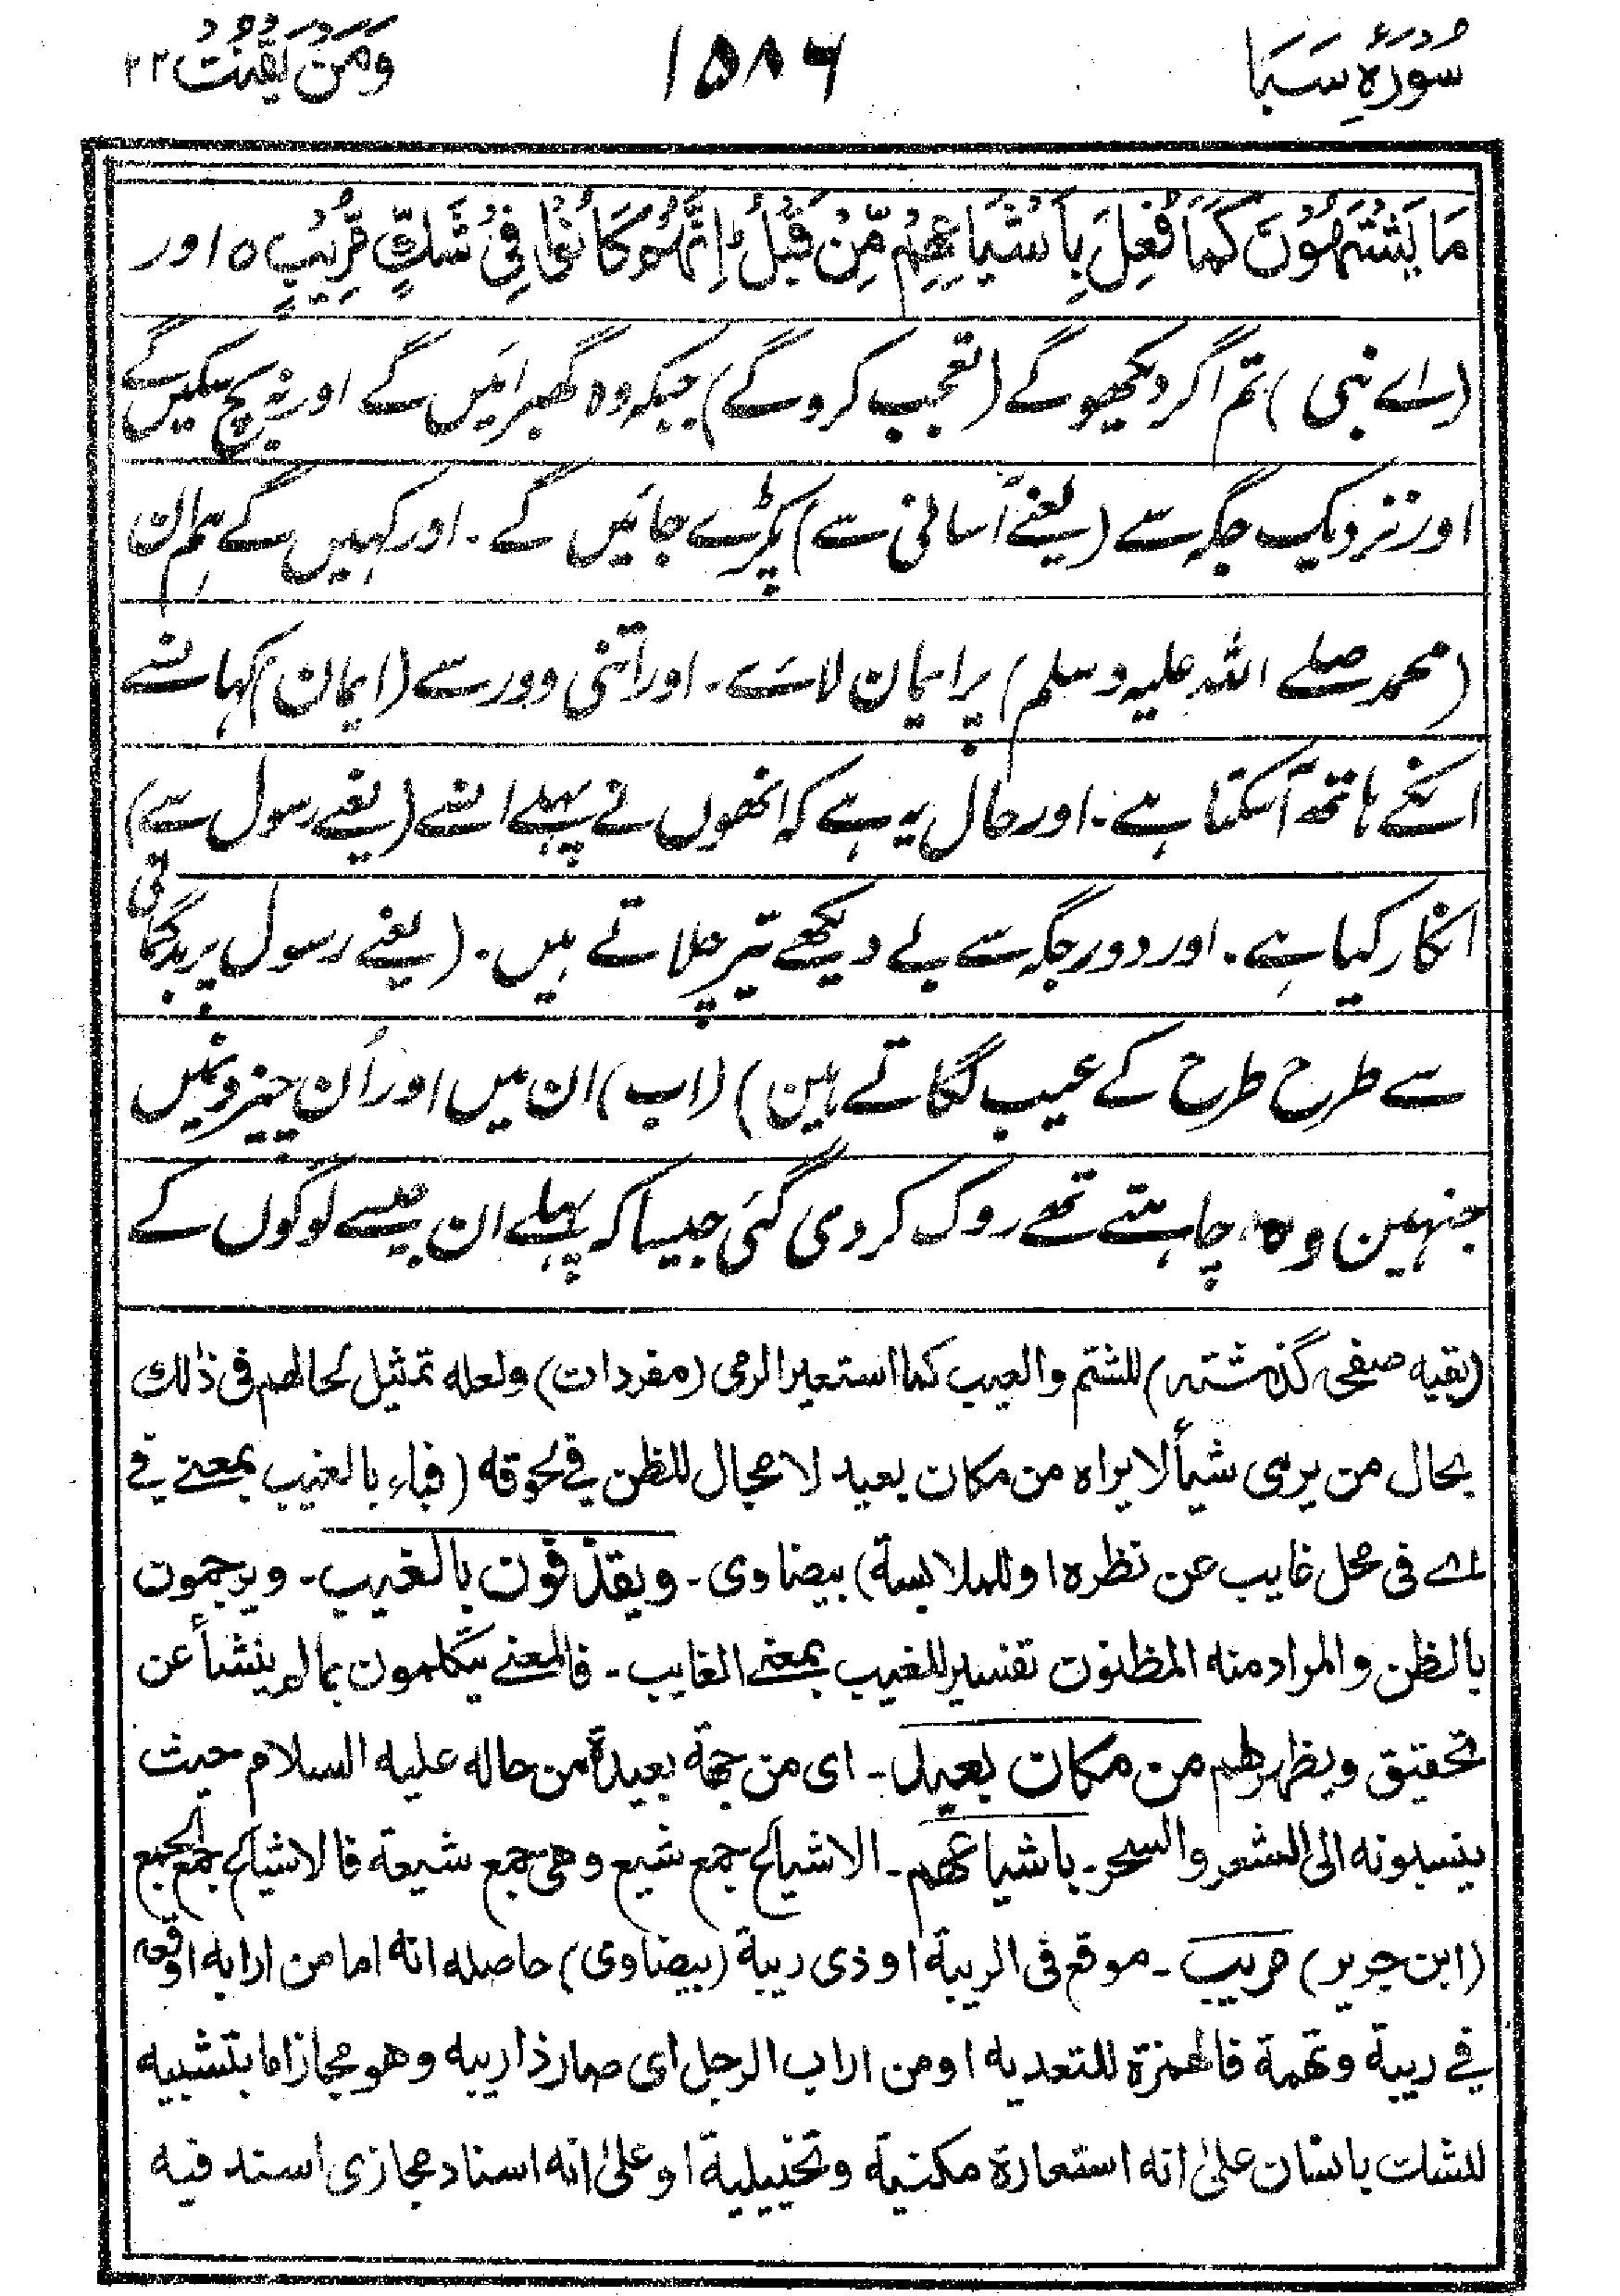 سُورَۂِ سَبَا ۱۵۸۶ وَمَنْ يَّقْنُتْ ۲۲
مَا يَشْتَهُوْنَ كَمَا فُعِلَ بِاَشْيَاعِهِمْ مِّنْ قَبْلُ ؕ اِنَّهُمْ كَانُوْا فِيْ شَكٍّ مُّرِيْبٍ ٥ اور
(اے نبی) تم اگر دیکھوگے (تعجب کروگے) جبکہ وہ گھبرائیں گے اور نہ بچ سکیں گے
اور نزدیک جگہ سے (یعنے آسانی سے) پکڑے جائیں گے ۔ اور کہیں گے ہم ان
(محمد صلے اللہ علیہ وسلم) پر ایمان لائے ۔ اور اتنی دور سے (ایمان) کہانسے
انکے ہاتھ آسکتا ہے ۔ اور حال یہ ہے کہ انھوں نے پہلے انسے (یعنے رسول سے)
انکار کیا ہے ۔ اور دور جگہ سے بے دیکھے تیر چلاتے ہیں ۔ (یعنے رسول پر بدگمانی
سے طرح طرح کے عیب لگاتے ہین) (اب) ان میں اور اُن چیزونمیں
جنہین وہ چاہتے تھے روک کردی گئی جیسا کہ پہلے ان جیسے لوگوں کے
(بقیہ صفحہ گذشتہ) للشتم والعیب کما استعیر الرمی (مفردات) ولعله تمثیل لحالهم فی ذٰلك
بحال من یرمی شیأ لا یراه من مکان بعید لا مجال للظن فی لحوقه (فباء بالغیب بمعنے فی
اے فی محل غایب عن نظرہ او للملابسة) بیضاوی ۔ ویقذفون بالغیب ۔ ویرجمون
بالظن والمراد منه المظنون تفسیر للغیب بمعنے الغایب ۔ فالمعنے یتکلمون بمالم ینشأ عن
تحقیق ویظهر لهم من مکان بعید ۔ ای من جهة بعیدة من حاله علیه السلام حیث
ینسبونه الی الشعر والسحر ۔ باشیاعهم ۔ الاشیاع جمع شیع وهی جمع شیعة فالاشیاع جمع الجمع
(ابن جریر) مریب ۔ موقع فی الریبة او ذی ریبة (بیضاوی) حاصله انه اما من ارابه اوقعه
فی ریبة وتهمة فالهمزة للتعدیه او من اراب الرجل ای صار ذا ریبه وهو مجاز اما بتشبیه
للشك بانسان علیٰ انه استعارة مکنیة وتخییلیة او علیٰ انه اسناد مجازی اسند فیه